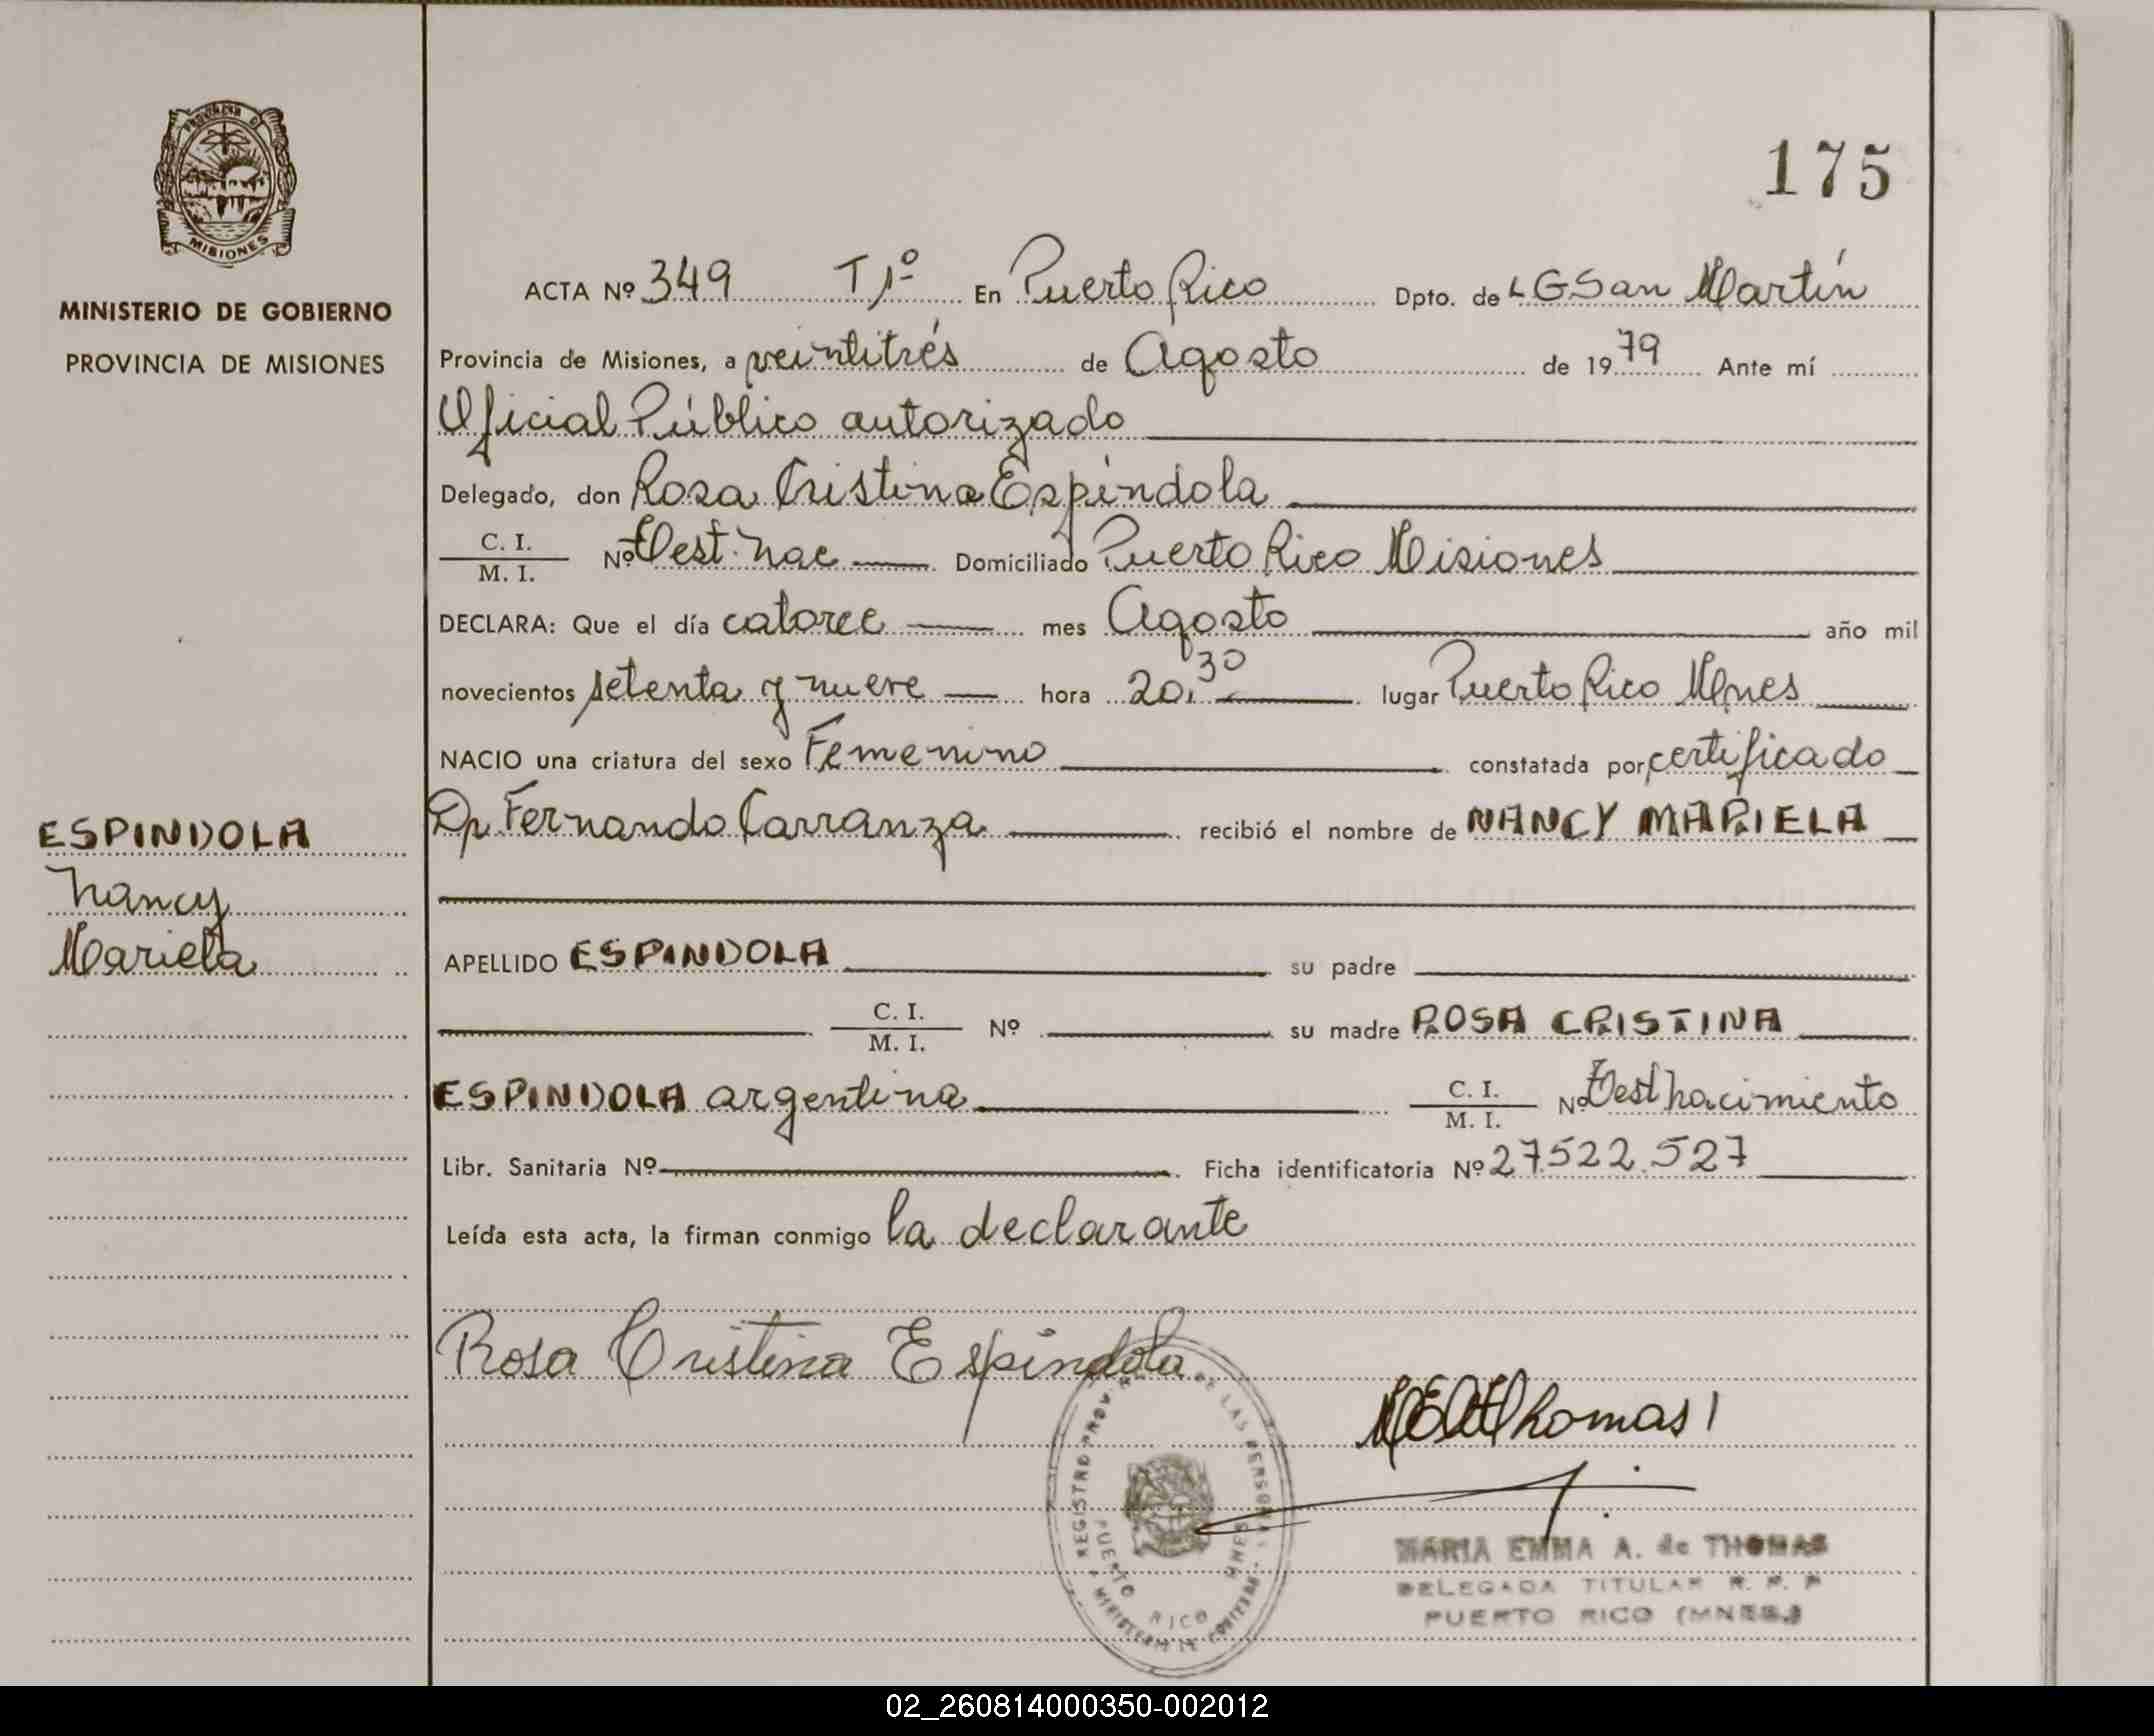 PROVINCIA DE
MISIONES
MINISTERIO DE GOBIERNO
PROVINCIA DE MISIONES
ESPINDOLA
Nancy
Mariela
175
ACTA Nº 349 T 1º En Puerto Rico Dpto. de L G San Martín
Provincia de Misiones, a veintitrés de Agosto de 1979 Ante mí
Oficial Público autorizado
Delegado, don Rosa Cristina Espíndola
C. I.
M. I.
Nº Test. Nac Domiciliado Puerto Rico Misiones
DECLARA: Que el día catorce mes Agosto año mil
novecientos setenta y nueve hora 20,30 lugar Puerto Rico Mnes
NACIO una criatura del sexo Femenino constatada por certificado
Dr Fernando Carranza recibió el nombre de NANCY MARIELA
APELLIDO ESPINDOLA su padre
C. I.
M. I.
Nº su madre ROSA CRISTINA
ESPINDOLA argentina C. I.
M. I.
Nº Test Nacimiento
Libr. Sanitaria Nº Ficha identificatoria Nº 27.522.527
Leída esta acta, la firman conmigo la declarante
Rosa Cristina Espíndola
Thomas
REGISTRO PROV DE LAS PERSONAS
PUERTO RICO MNES
MINISTERIO DE GOBIERNO
MARIA EMMA A. de THOMAS
DELEGADA TITULAR R. P. P
PUERTO RICO (MNES.)
02_260814000350-002012